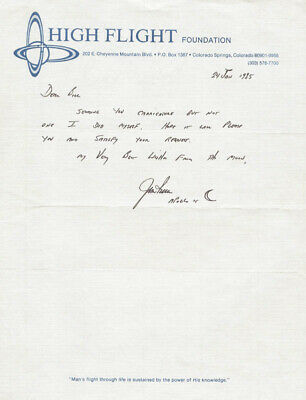 HIGH FLIGHT FOUNDATION
202 E. Cheyenne Mountain Blvd. • P.O. Box 1387 • Colorado Springs, Colorado 80901
(303) 576-7700
24 Jan 1985
Dear
Sending you caricature but not
one I did myself. Hope it will please
you and satisfy your request.
My Very Best Wishes From the Moon,
Jim Irwin
Apollo 15
"Man's flight through life is sustained by the power of His knowledge."